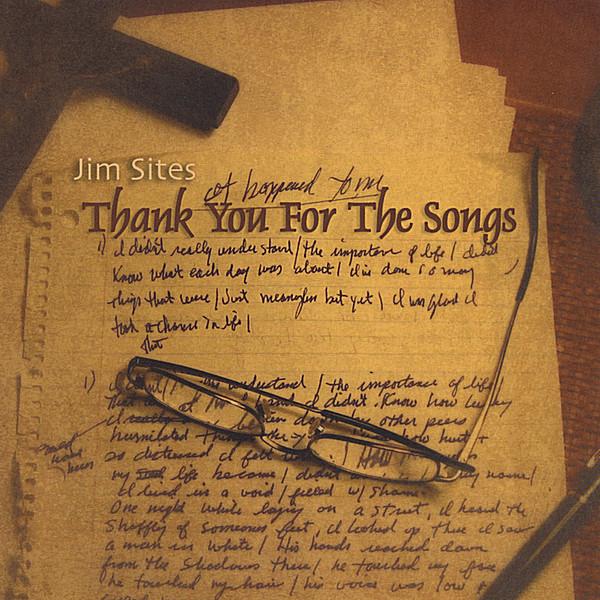 Jim Sites
happened to me
Thank You For The Songs
1) I didn't really understand / the importance of life / I didn't
Know what each day was about / I've done so many
things that were / Just meaningless but yet / I was glad I
took a chance in life /
that
1) I understand / the importance of life /
that I didn't Know how lucky
I other peers
humiliated how hurt +
so distressed I felt
my life became / I didn't my name /
I lived in a void / filled w/ shame.
One night while laying on a street, I heard the
Shuffling of someones feet, I looked up there I saw
a man in white / His hands reached down
from the Shadows there / he touched my face
he touched my hair / his voice was low +